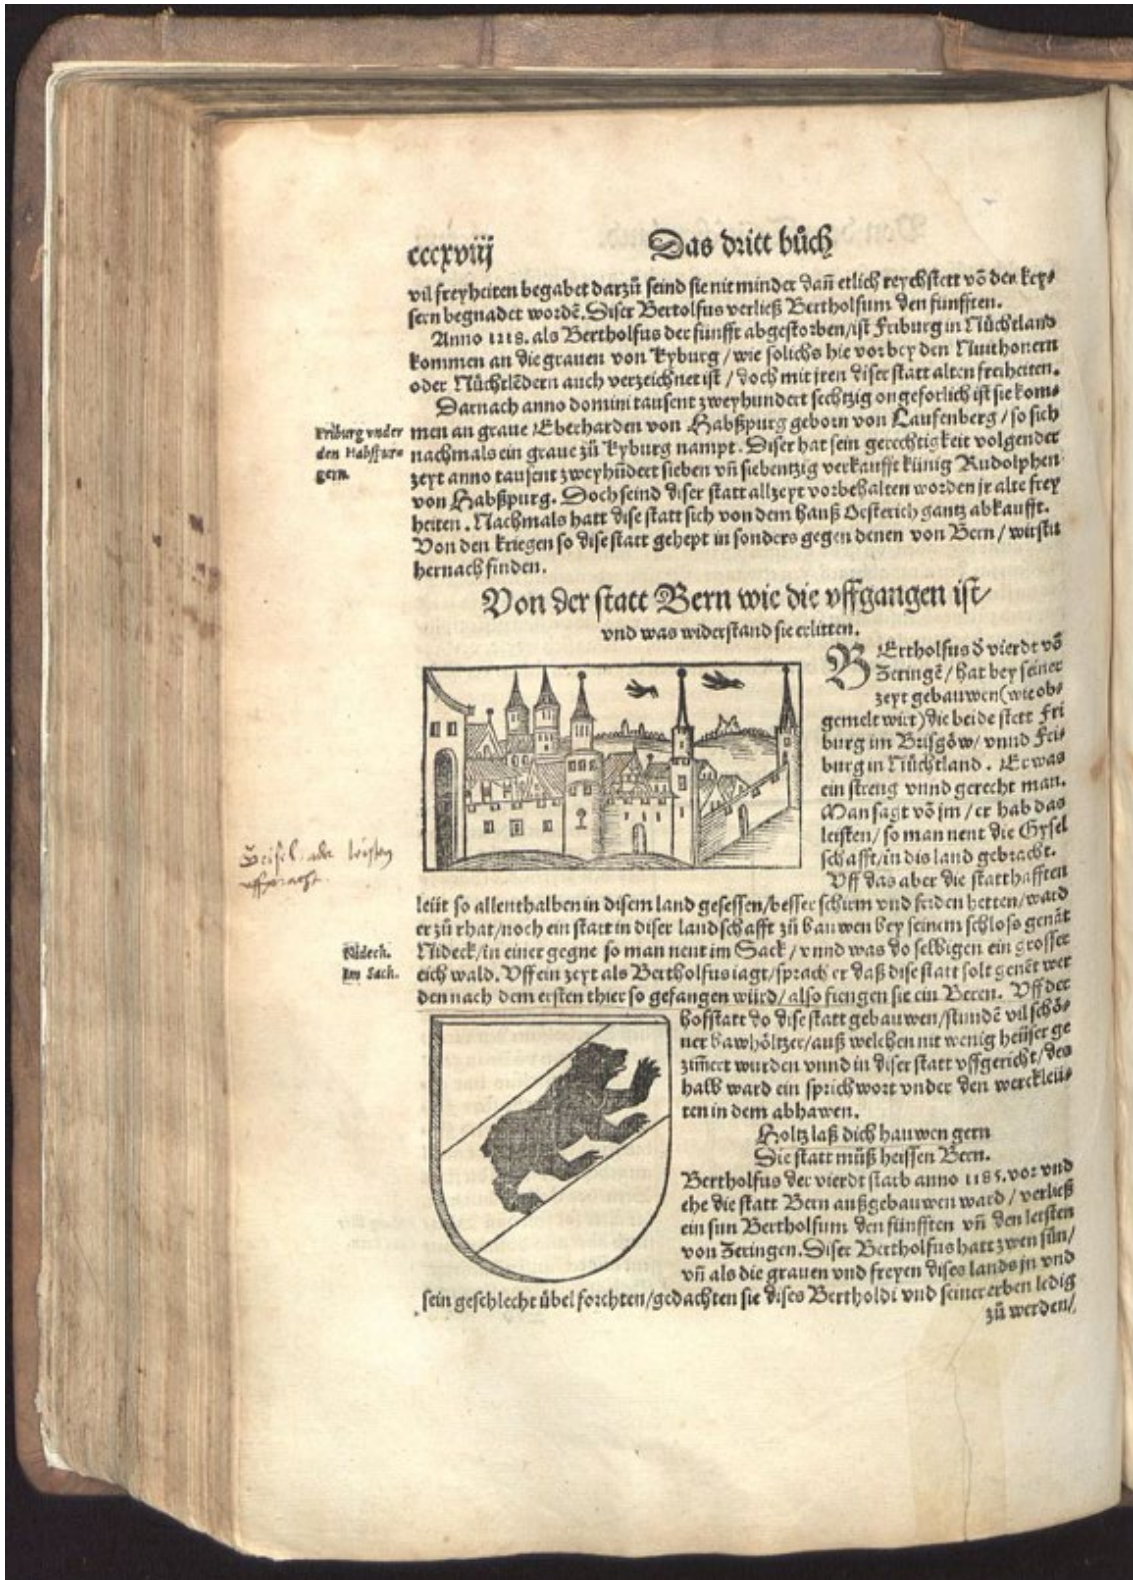 cccxviij Das dritt bůch
vil freyheiten begabet darzů seind sie nit minder dañ etlich reychstett võ den key-
sern begnadet wordẽ. Diser Bertolfus verließ Bertholfum den funfften.
Anno 1218. als Bertholfus der funfft abgestorben/ist Friburg in Nüchtland
kommen an die grauen von Kyburg/wie solichs hie vor bey den Nuithonern
oder Nüchtlẽdern auch verzeichnet ist/doch mit jren diser statt alten freiheiten.
Darnach anno domini tausent zweyhundert sechtzig ongeforlich ist sie kom-
Friburg vnder
den Habspur-
gern.
men an graue Eberharden von Habßpurg geborn von Laufenberg/so sich
nachmals ein graue zů Kyburg nampt. Diser hat sein gerechtigkeit volgender
zeyt anno tausent zweyhũdert sieben vñ siebentzig verkaufft künig Rudolphen
von Habßpurg. Doch seind diser statt allzeyt vorbehalten worden jr alte frey
heiten. Nachmals hatt dise statt sich von dem hauß Oesterich gantz abkaufft.
Von den kriegen so dise statt gehept in sonders gegen denen von Bern/wirstu
hernach finden.
Von der statt Bern wie die vffgangen ist/
vnd was widerstand sie erlitten.
BErtholfus d̕ vierdt võ
Zeringẽ/hat bey seiner
zeyt gebauwen (wie ob-
gemelt wirt) die beide stett Fri
burg im Brisgöw/vnnd Fri-
burg in Nüchtland. Er was
ein streng vnnd gerecht man.
Man sagt võ jm/er hab das
leisten/so man nent die Gysel
schafft/in dis land gebracht.
Vff das aber die statthafften
leüt so allenthalben in disem land gesessen/besser schirm vnd friden hetten/ward
er zů rhat/noch ein statt in diser landschafft zů bauwen bey seinem schloss genãt
Nideck.
Im Sack.
Nideck/in einer gegne so man nent im Sack/vnnd was do selbigen ein grosser
eich wald. Vff ein zeyt als Bertholfus iagt/sprach er daß dise statt solt genẽt wer
den nach dem ersten thier so gefangen würd/also fiengen sie ein Beren. Vff der
hofstatt do dise statt gebauwen/stundẽ vil schö-
ner bawhöltzer/auß welchen nit wenig heüser ge
zim̃ert wurden vnnd in diser statt vffgericht/des
halb ward ein sprichwort vnder den werckleü-
ten in dem abhawen.
Holtz laß dich hauwen gern
Die statt můß heissen Bern.
Bertholfus der vierdt starb anno 1185. vor vnd
ehe die statt Bern außgebauwen ward/verließ
ein sun Bertholfum den fünfften vñ den letsten
von Zeringen. Diser Bertholfus hatt zwen sün/
vñ als die grauen vnd freyen dises lands jn vnd
sein geschlecht übel forchten/gedachten sie dises Bertholdi vnd seiner erben ledig
zů werden/